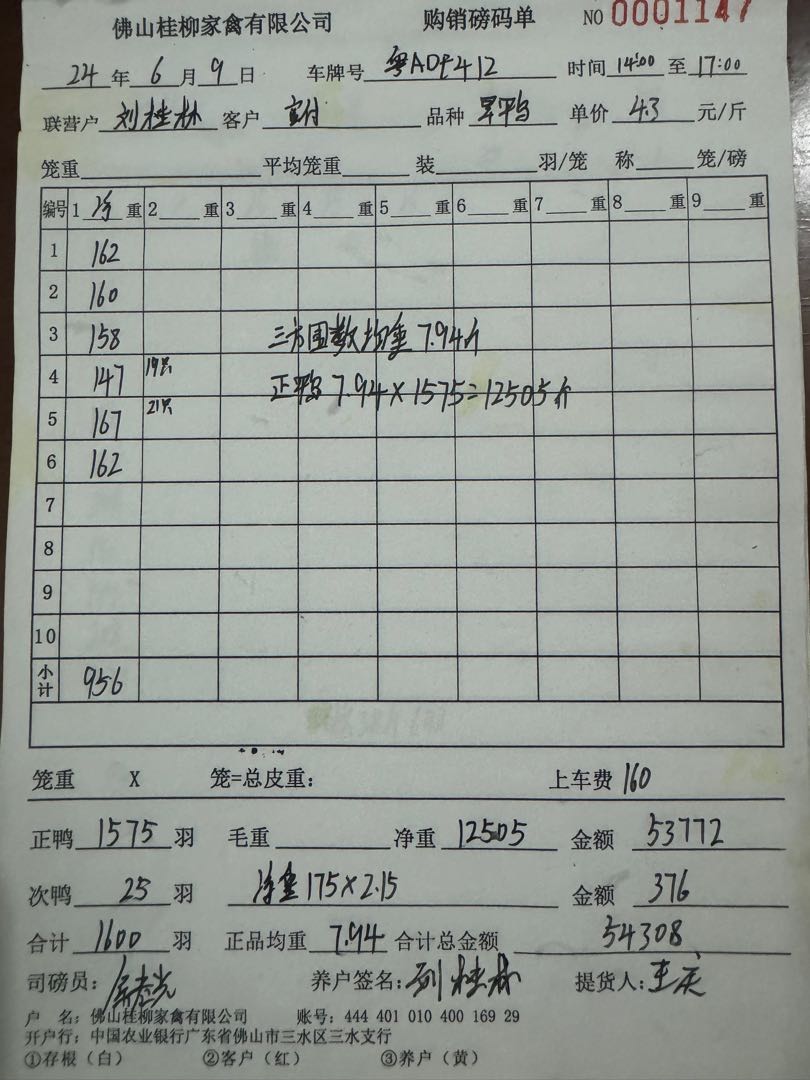 佛山桂柳家禽有限公司 购销磅码单 NO 0001147
24 年 6 月 9 日 车牌号 粤ADF412 时间 14:00 至 17:00
联营户 刘桂林 客户 宝付 品种 旱鸭 单价 4.3 元/斤
笼重 平均笼重 装 羽/笼 称 笼/磅
编号 1 净 重 2 重 3 重 4 重 5 重 6 重 7 重 8 重 9 重
1 162
2 160
3 158 三方国数均重 7.94斤
4 147 19只 正鸭 7.94×1575=12505斤
5 167 21只
6 162
7
8
9
10
小计 956
笼重 X 笼=总皮重: 上车费 160
正鸭 1575 羽 毛重 净重 12505 金额 53772
次鸭 25 羽 净重 175×2.15 金额 376
合计 1600 羽 正品均重 7.94 合计总金额 54308
司磅员: 养户签名: 刘桂林 提货人: 王庆
户 名: 佛山桂柳家禽有限公司 账号: 444 401 010 400 169 29
开户行: 中国农业银行广东省佛山市三水区三水支行
①存根(白) ②客户(红) ③养户(黄)